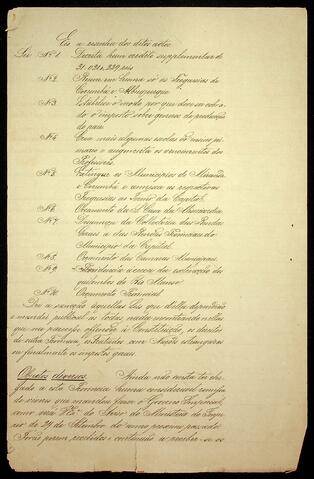 Eis a resenha dos ditos actos.
Lei Nº 1. Decreta hum credito supplementar de
21:021,239 reis
Nº 2. Reune em huma só as Freguesias de
Corumbá e Albuquerque
Nº 3. Estabelece o modo por que deve ser cobra-
do o imposto sobre generos de producção
do paiz
Nº 4. Crea mais algumas escolas de ensino pri-
mario e augmenta os vencimentos dos
Professores.
Extingue os Municipios de Miranda
e Corumbá e annexa as respectivas
Freguesias ao Termo da Capital
Nº 6. Orçamento da S. Casa da Misericordia
Nº 7. da Collectoria das Rendas
Geraes e das Rendas Provinciaes do
Municipio da Capital.
Orçamento das Camaras Municipaes.
Nº 9. Providencia acerca da extincção dos
quilombos do Rio Manso
Nº 10. Orçamento Provincial
Dei a sancção áquellas Leis que della dependião
e mandei publical-as todas, nada encontrando nellas
que me parecesse offender á Constituição, os direitos
de outra Provincia, os tratados com Nações estrangeiras
ou finalmente os impostos geraes.
Objectos diversos. Ainda não consta ter che-
gado a esta Provincia huma consideravel remessa
de viveres que mandou fazer o Governo Imperial,
como do Aviso do Ministerio do Impe-
rio de 24 de Setembro do anno proximo passado.
Forão porem recebidos e continuão a receber-se os